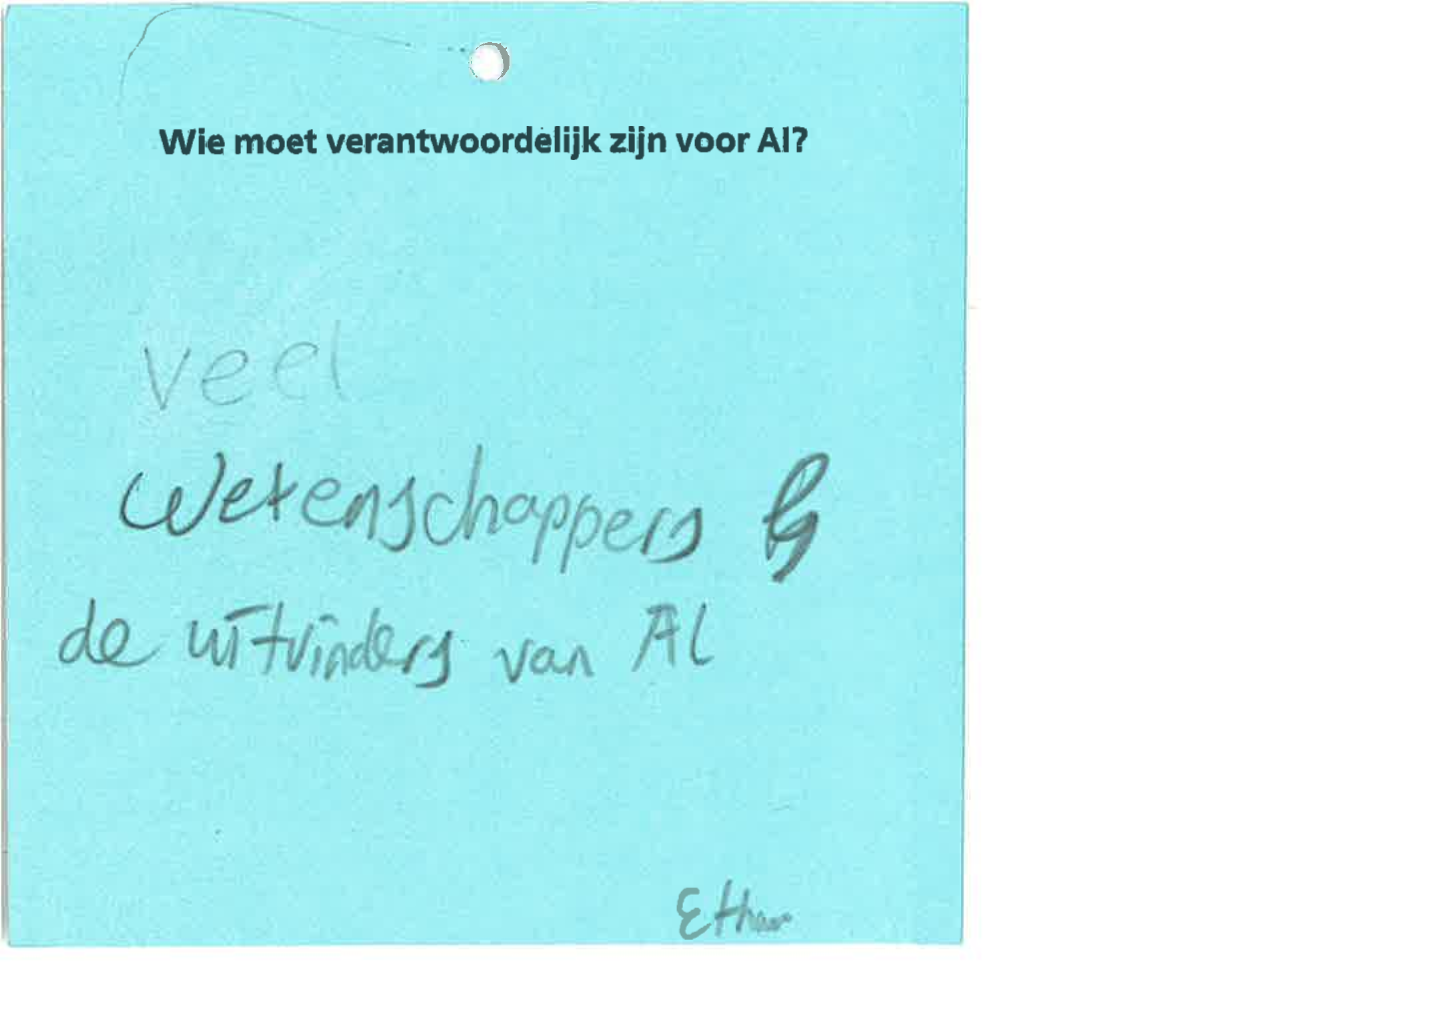 Wie moet verantwoordelijk zijn voor AI?
veel
wetenschappers &
de uitvinders van AI
Ethan